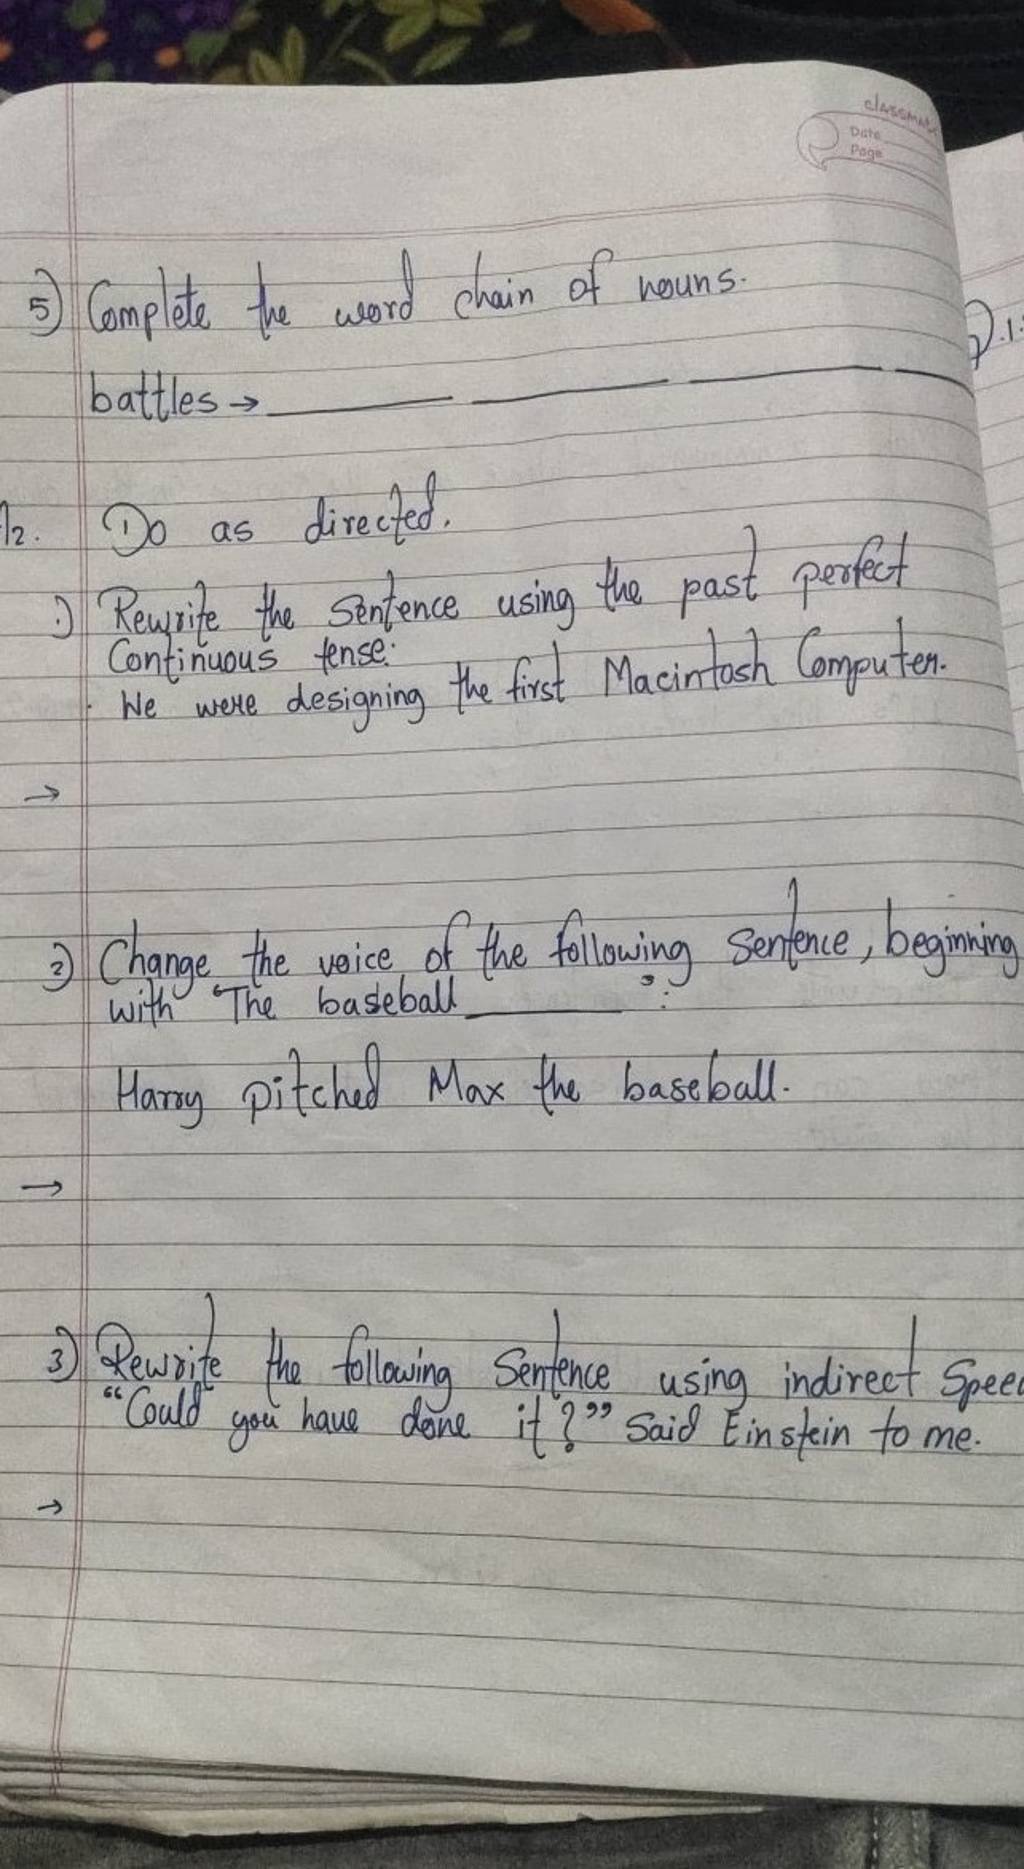 classmate
Date
Page
5) Complete the word chain of nouns.
battles → ____ ____ ____ ____
2. Do as directed.
1) Rewrite the sentence using the past perfect
Continuous tense:
We were designing the first Macintosh Computer.
→
2) Change the voice of the following sentence, beginning
with "The baseball ____":
Harry pitched Max the baseball.
→
3) Rewrite the following Sentence using indirect Spee
“Could you have done it?” Said Einstein to me.
→